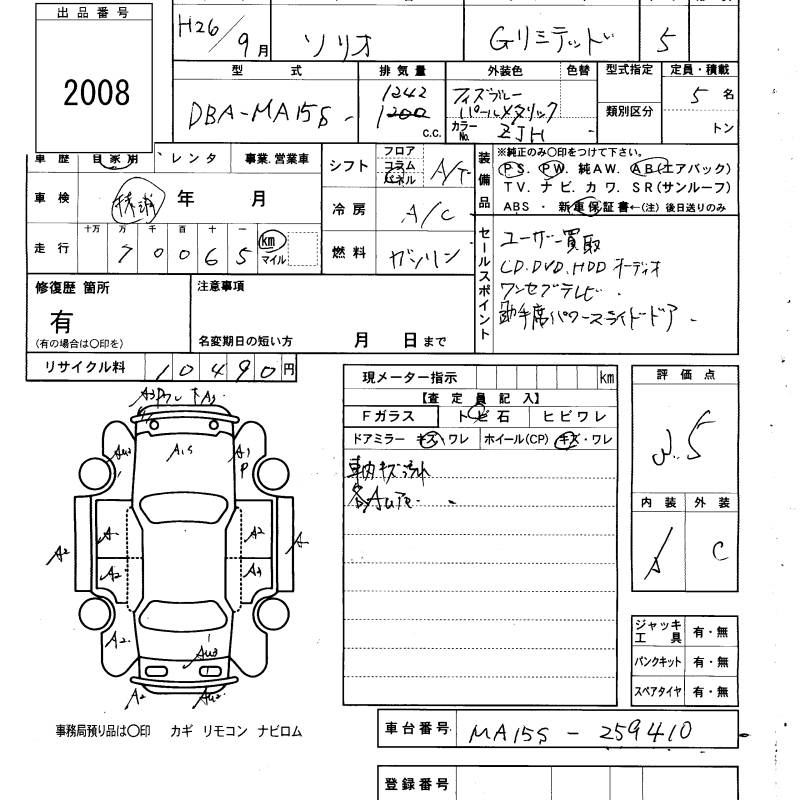 出品番号
2008
H26/9月
ソリオ
Gリミテッド
5
型 式
排気量
外装色
色替
型式指定
定員・積載
DBA-MA15S
1242
1200
c.c.
パールメタリック
カラーNo. ZJH
類別区分
5 名
トン
車歴
自家用
レンタ
事業.営業車
シフト
フロア
コラム
パネル
A/T
装備品
※純正のみ〇印をつけて下さい。
PS. PW. 純AW. AB(エアバック)
TV. ナビ. カワ. SR(サンルーフ)
ABS ・ 新車保証書←(注) 後日送りのみ
車検
年 月
冷房
A/C
走行
十万 万 千 百 十 一
7 0 0 6 5
km
マイル
燃料
ガソリン
セールスポイント
ユーザー買取
CD.DVD.HDD オーディオ
ワンセグテレビ
助手席パワースライドドア
修復歴 箇所
有
(有の場合は〇印を)
注意事項
名変期日の短い方 月 日まで
リサイクル料
10490円
現メーター指示
km
【査定員記入】
Fガラス
トビ石
ヒビワレ
ドアミラー キズ・ワレ
ホイール(CP) キズ・ワレ
評価点
3.5
内装
外装
A
C
A1
A1
P
A2
A
A2
A3
A
A2
A2
ジャッキ
工具
有・無
パンクキット
有・無
スペアタイヤ
有・無
事務局預り品は〇印 カギ リモコン ナビロム
車台番号
MA15S - 259410
登録番号